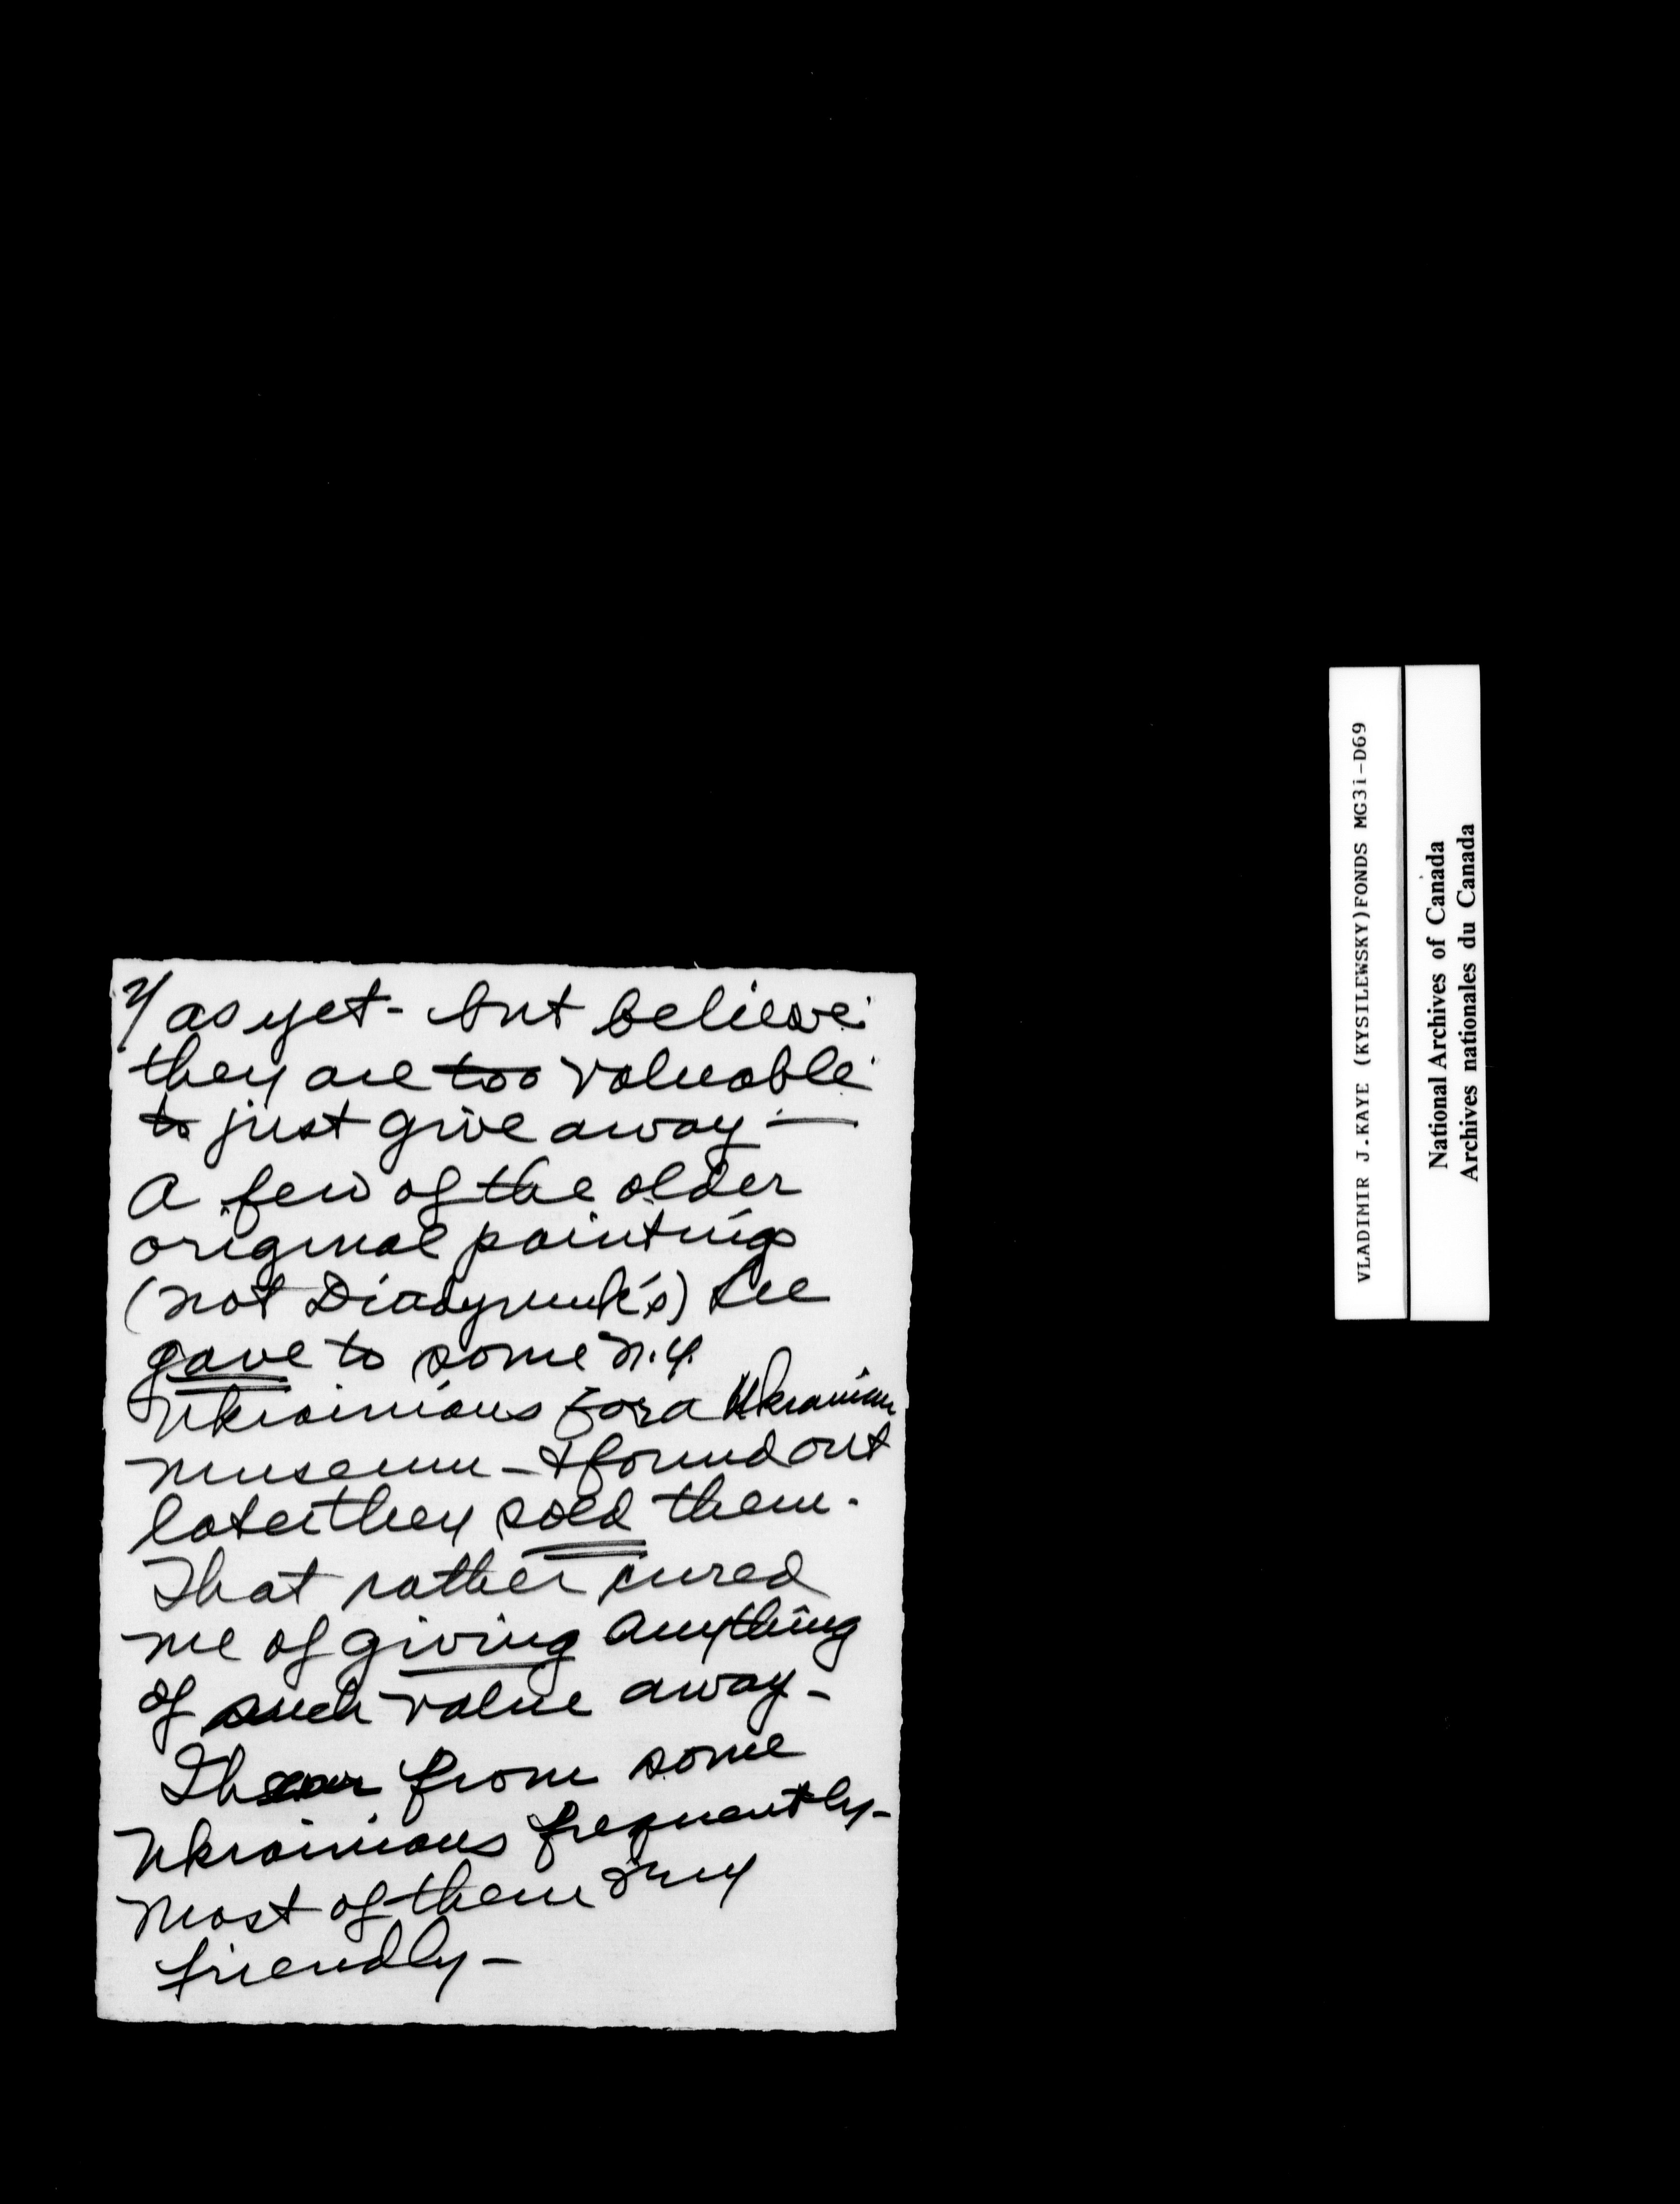 as yet - but believe
they are too valuable
to just give away —
A few of the older
original paintings
(not Diadyniuk's) Lee
gave to some N.Y.
Ukrainians for a Ukrainian
museum - & found out
later they sold them.
That rather cured
me of giving anything
of such value away -
I hear from some
Ukrainians frequently -
Most of them very
friendly -
VLADIMIR J.KAYE (KYSILEWSKY)FONDS MG31-D69
National Archives of Canada
Archives nationales du Canada